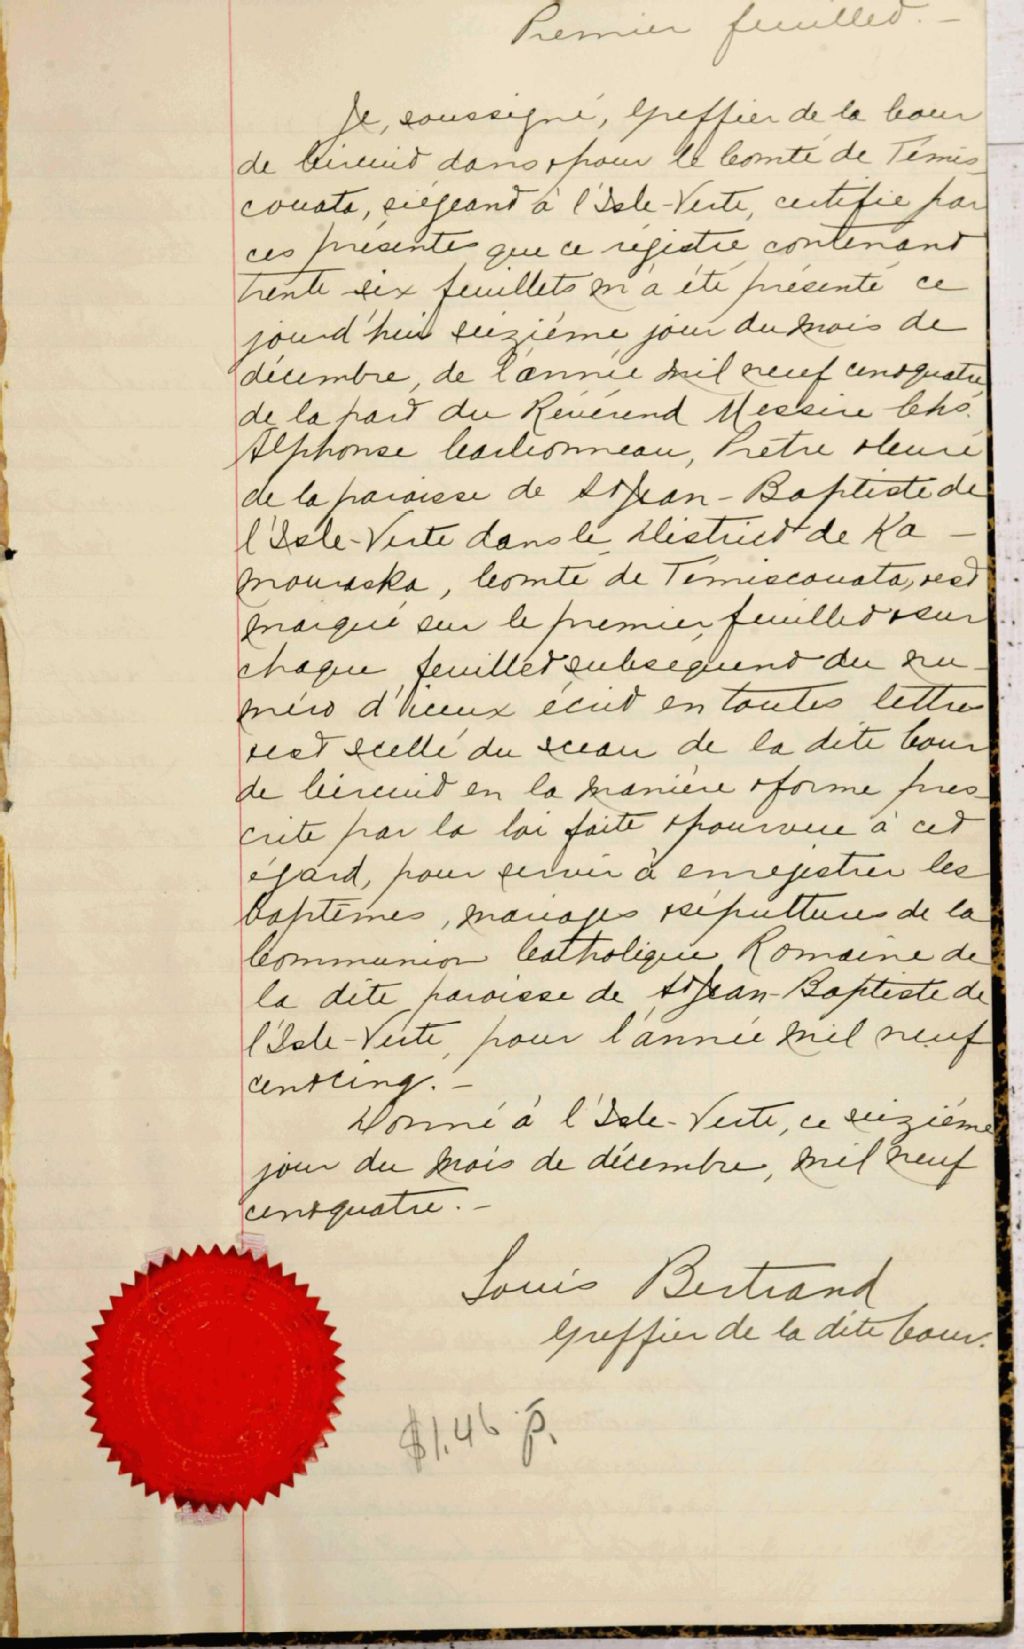 Premier feuillet. -
Je, soussigné, Greffier de la Cour
de Circuit dans & pour le Comté de Témis
couata, siégeant à l'Isle-Verte, certifie par
ces présentes que ce régistre contenant
trente six feuillets m'a été présenté ce
jourd'hui seizième jour du mois de
décembre, de l'année mil neuf cent quatre,
de la part du Révérend Messire Chs.
Alphonse Carbonneau, Prêtre & Curé
de la paroisse de St Jean-Baptiste de
l'Isle-Verte dans le District de Ka -
mouraska, Comté de Témiscouata, & est
marqué sur le premier feuillet & sur
chaque feuillet subséquent du nu -
méro d'iceux écrit en toutes lettres
& est scellé du sceau de la dite Cour
de Circuit en la manière & forme pres -
crite par la loi faite & pourvue à cet
égard, pour servir à enregistrer les
baptêmes, mariages & sépultures de la
Communion Catholique Romaine de
la dite paroisse de St Jean-Baptiste de
l'Isle-Verte, pour l'année mil neuf
cent cinq. -
Donné à l'Isle-Verte, ce seizième
jour du mois de décembre, mil neuf
cent quatre. -
Louis Bertrand
Greffier de la dite Cour.
$1.46 p.